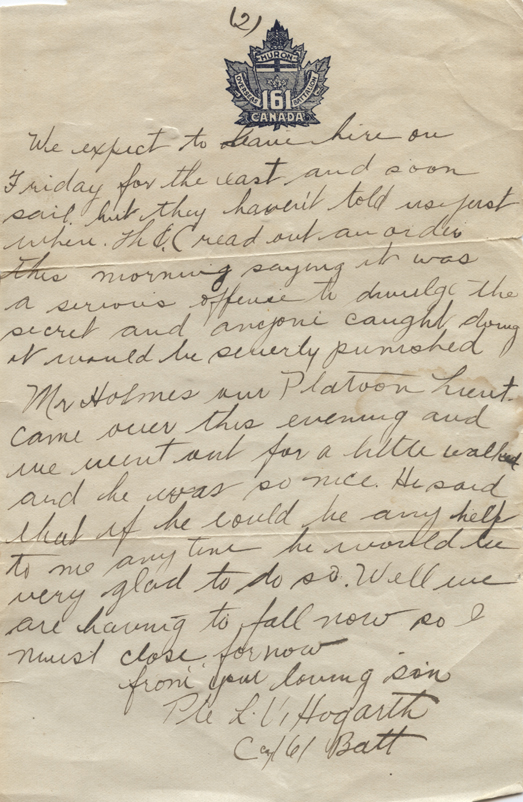 (2)
HURON
OVERSEAS BATTALION
161
CANADA
We expect to leave hire on
Friday for the east and soon
sail but they haven't told us just
when. Th O.C read out an order
this morning saying it was
a serious offense to divulge the
secret and anyone caught doing
it would be severly punished
Mr Holmes our Platoon Lieut.
came over this evening and
we went out for a little walk
and he was so nice. He said
that if he could be any help
to me any time he would be
very glad to do so. Well we
are having to fall now so I
must close for now
from your loving son
Pte L. V. Hogarth
161 Batt